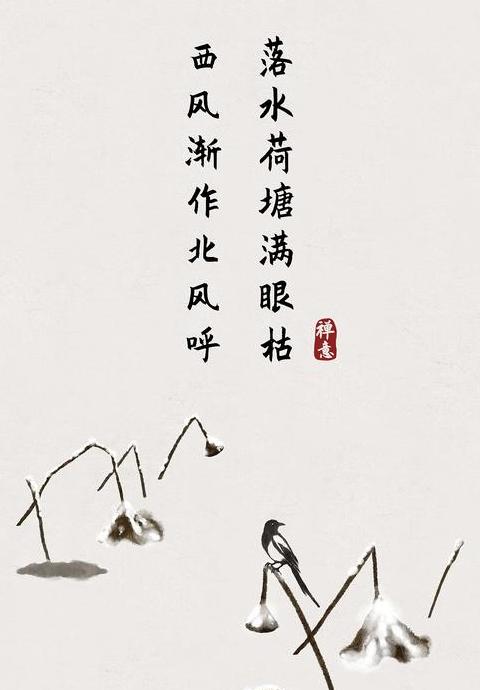 落水荷塘满眼枯
西风渐作北风呼
禅意